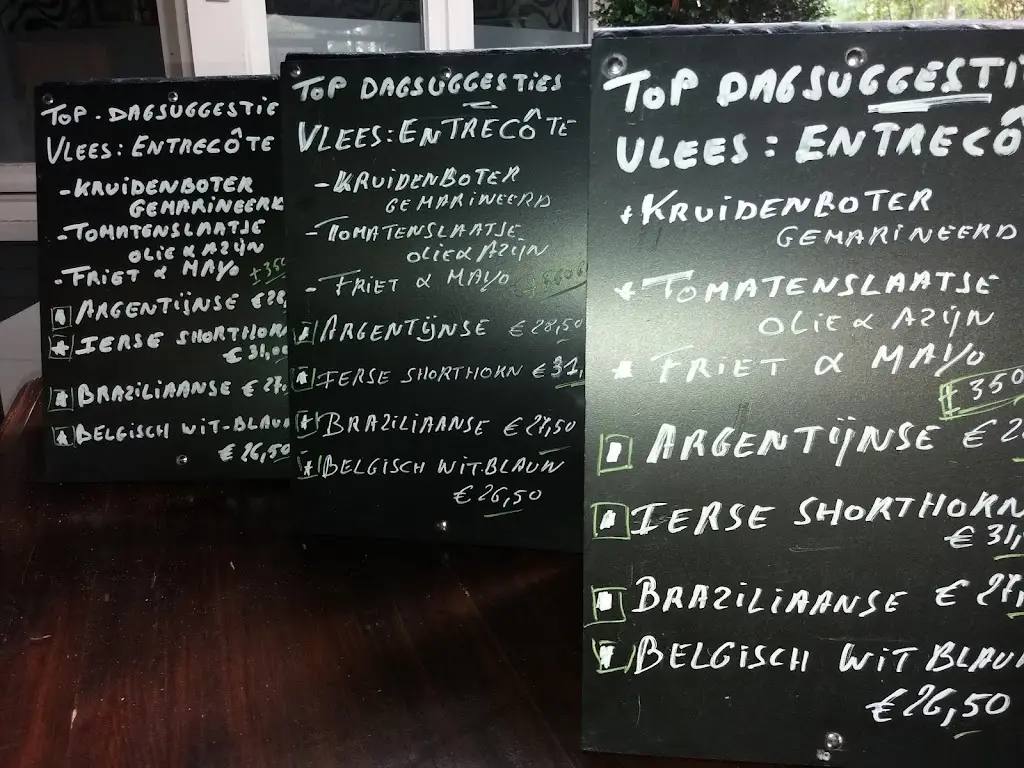 TOP. DAGSUGGESTIE
VLEES: ENTRECÔTE
- KRUIDENBOTER
GEMARINEER
- TOMATENSLAATJE
OLIE & AZIJN
- FRIET & MAYO
ARGENTIJNSE €
IERSE SHORTHORN
€ 31,00
BRAZILIAANSE €
BELGISCH WIT-BLAUW
€ 26,50
TOP DAGSUGGESTIES
VLEES: ENTRECÔTE
- KRUIDENBOTER
GEMARINEERD
- TOMATENSLAATJE
OLIE & AZIJN
- FRIET & MAYO
ARGENTIJNSE € 28,50
IERSE SHORTHORN € 31,
BRAZILIAANSE € 27,50
BELGISCH WIT.BLAUW
€ 26,50
TOP DAGSUGGESTI
VLEES: ENTRECÔ
KRUIDENBOTER
GEMARINEERD
TOMATENSLAATJE
OLIE & AZIJN
FRIET & MAYO
350
ARGENTIJNSE € 2
IERSE SHORTHORN
€ 31,
BRAZILIAANSE € 27,
BELGISCH WIT BLAUW
€ 26,50